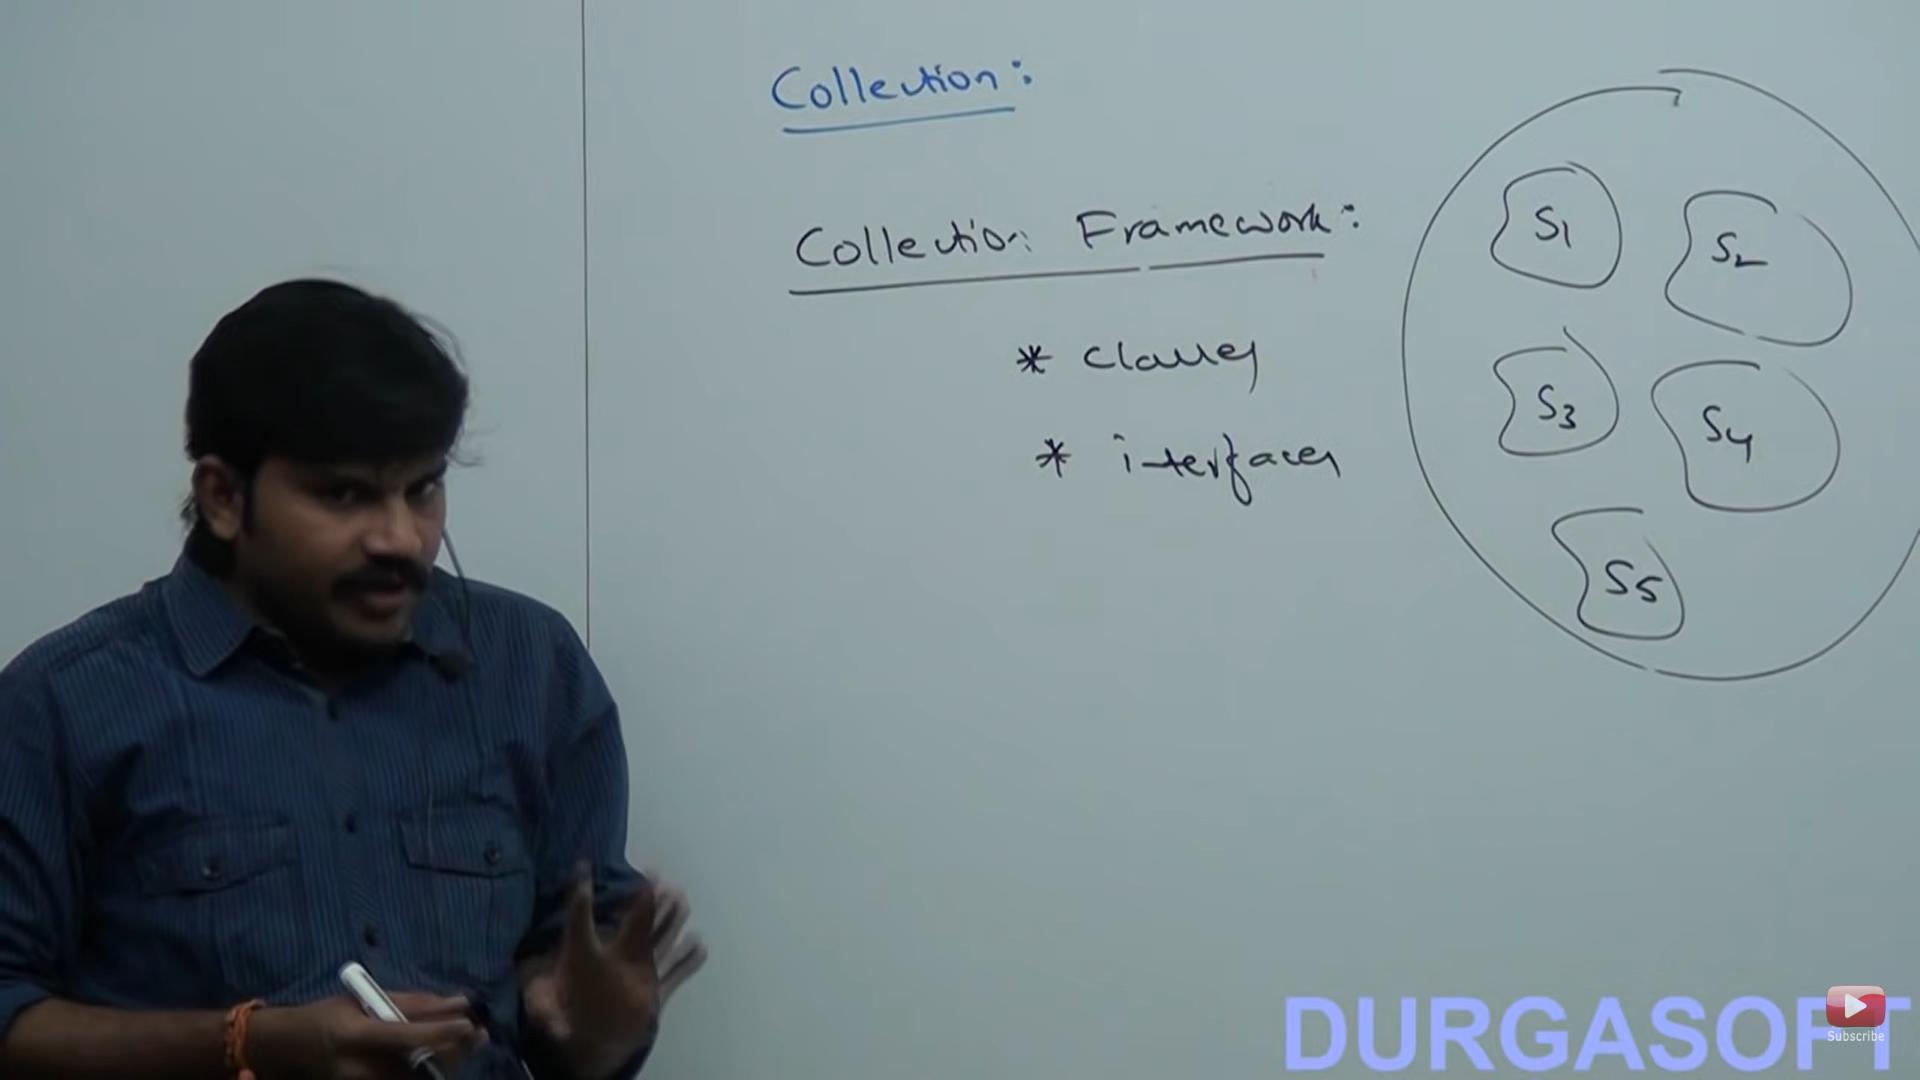 Collection:
Collection Framework:
* classes
* interfaces
S1
S2
S3
S4
S5
DURGASOFT
Subscribe